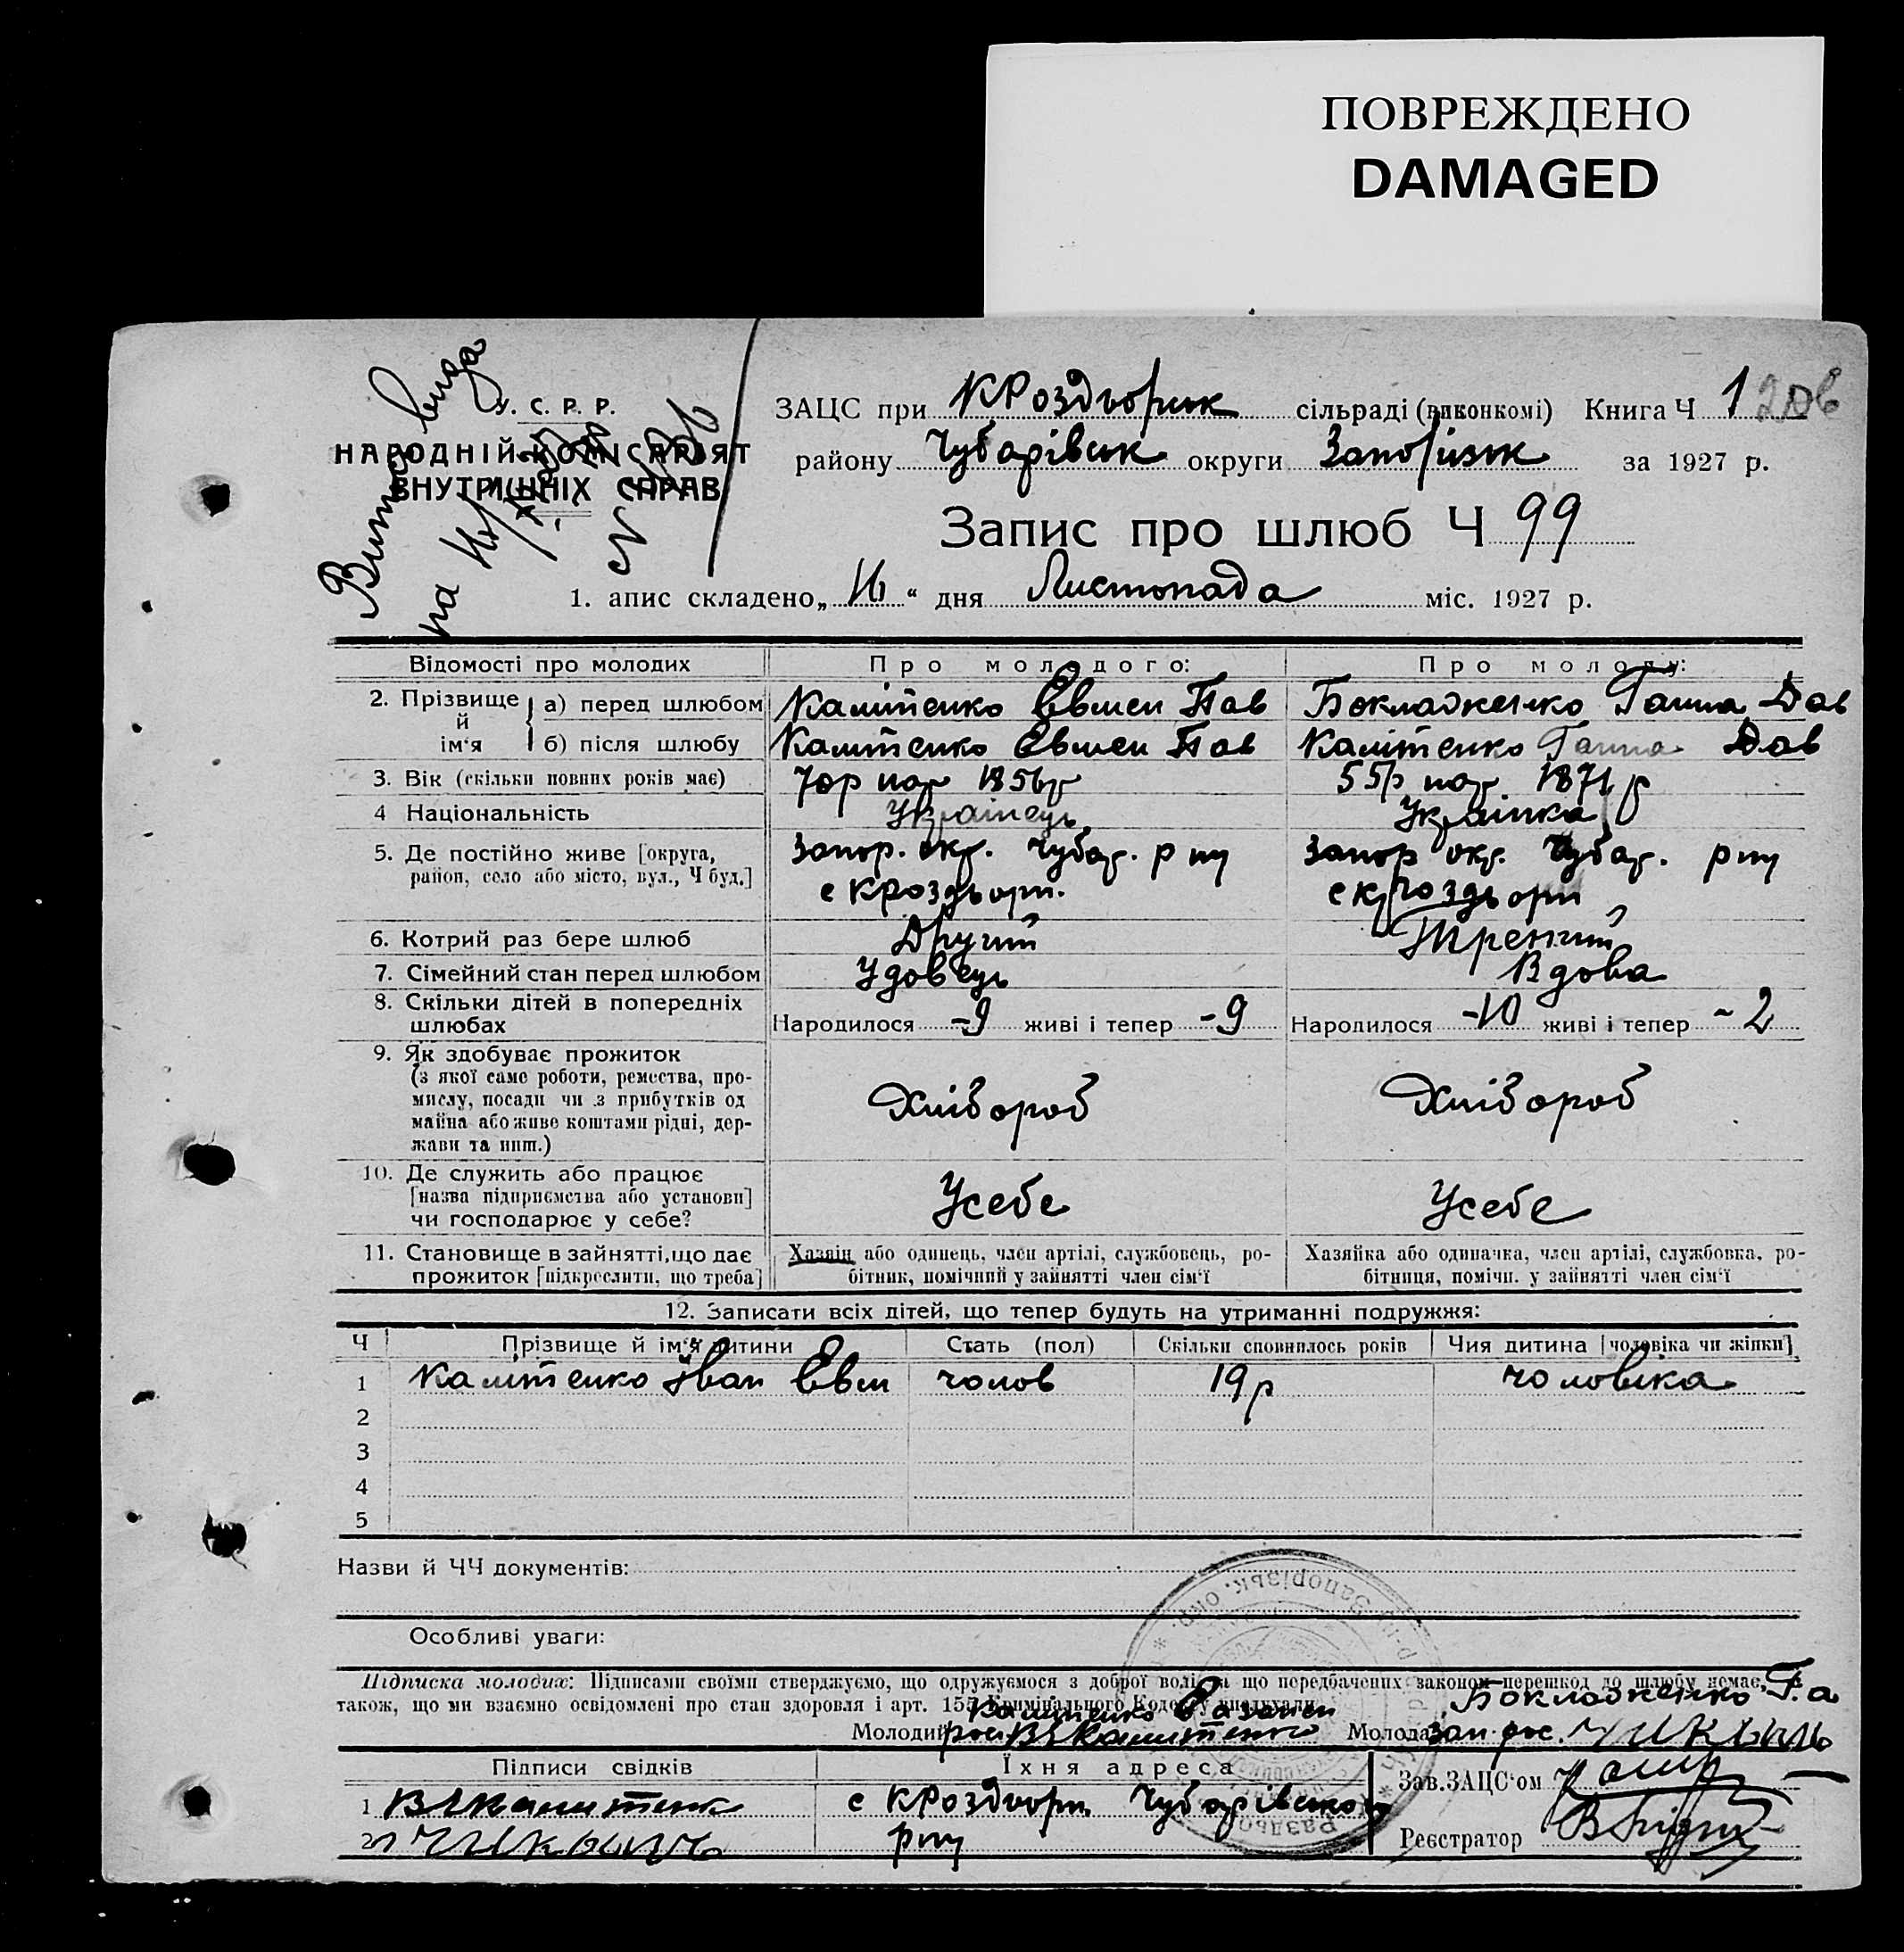 ПОВРЕЖДЕНО
DAMAGED
У. С. Р. Р.
НАРОДНІЙ КОМІСАРІЯТ
ВНУТРІШНІХ СПРАВ
ЗАЦС при КРоздорськ сільраді (виконкомі) Книга Ч 1
району Чубарівськ округи Запоріжж за 1927 р.
Запис про шлюб Ч 99
1. апис складено „ “ дня Листопада міс. 1927 р.
Відомості про молодих Про молодого: Про молоду:
2. Прізвище й ім‘я а) перед шлюбом Калітенко Евмен Пав Бокладженко Ганна Дав
б) після шлюбу Калітенко Евмен Пав Калітенко Ганна Дав
3. Вік (скільки повних років має) 70р нар 1856р 55р нар. 1871р
4 Національність Українець Українка
5. Де постійно живе [округа, Запор. окр. Чубар. р ну Запор окр. Чубар. р ну
район, село або місто, вул., Ч буд.] с КРоздорн. с кРоздорн
6. Котрий раз бере шлюб Другий Третий
7. Сімейний стан перед шлюбом Удовець Вдова
8. Скільки дітей в попередніх
шлюбах Народилося -9 живі і тепер -9 Народилося -10 живі і тепер -2
9. Як здобуває прожиток
(з якої саме роботи, ремества, про-
мислу, посади чи з прибутків од Хлібороб Хлібороб
майна або живе коштами рідні, дер-
жави та инш.)
10. Де служить або працює
[назва підприємства або установи] Усебе Усебе
чи господарює у себе?
11. Становище в зайнятті, що дає Хазяїн або одинець, член артілі, службовець, ро- Хазяйка або одиначка, член артілі, службовка, ро-
прожиток [підкреслити, що треба] бітник, помічний у зайнятті член сім‘ї бітниця, помічн. у зайнятті член сім‘ї
12. Записати всіх дітей, що тепер будуть на утриманні подружжя:
Ч Прізвище й ім‘я дитини Стать (пол) Скільки сповнилось років Чия дитина [чоловіка чи жінки]
1 Калітенко Іван Евм чолов 19р чоловіка
2
3
4
5
Назви й ЧЧ документів:
Особливі уваги:
Підписка молодих: Підписами своїми стверджуємо, що одружуємося з доброї волі, що передбачених законом перешкод до шлюбу немає, а
також, що ми взаємно освідомлені про стан здоровля і арт. 155 Кримінального Кодексу вислухали. Бокладженко Г.а
Молодий Молода
Підписи свідків Їхня адреса Зав. ЗАЦС‘ом
1 с КРоздорн Чубарівського
2 р ну Реєстратор